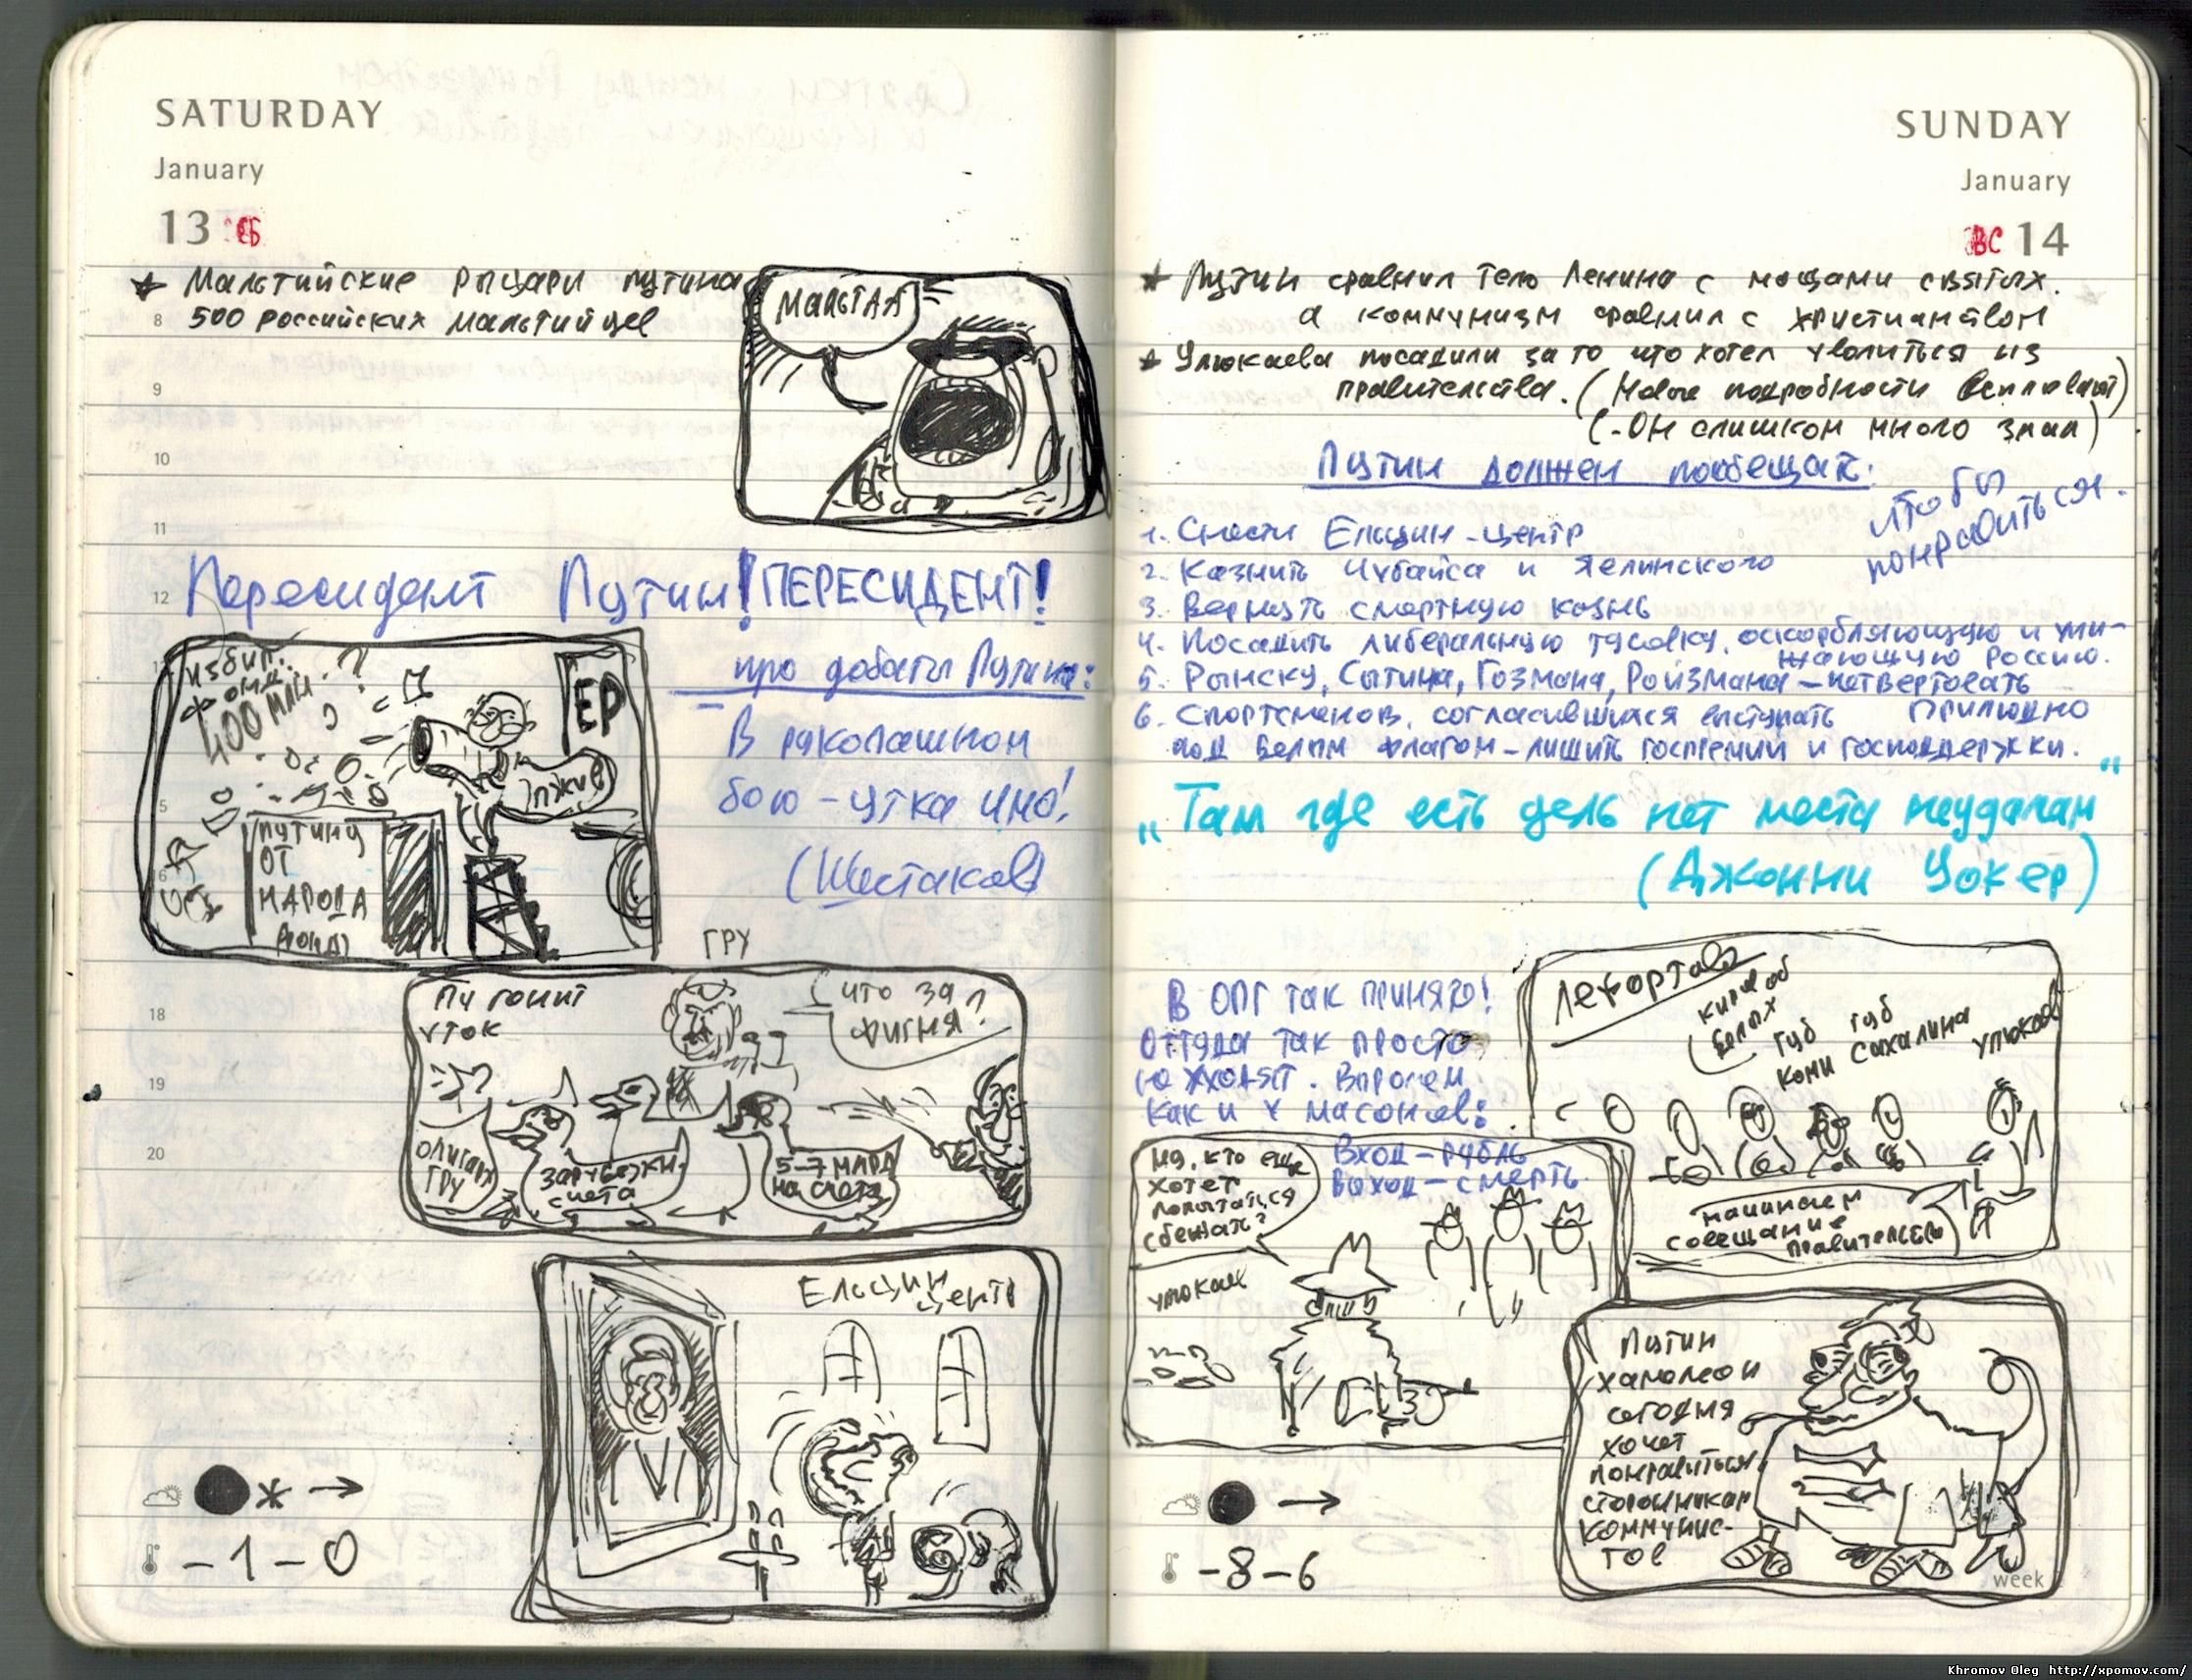 SATURDAY
January
13 СБ
★ Мальтийские рыцари путина
500 российских мальтийцев
МАЛЬТАА
Пересидент Путин! ПЕРЕСИДЕНТ!
избил.
фонд
400 млн.
?
ЕР
пжив
ПУТИНУ
ОТ
НАРОДА
ФОНД)
про дебаты Путина:
В рукопашном
бою – утка ино!
(Шестаков)
ГРУ
Пу гонит
уток
что за
фигня?
олигарх
ГРУ
зарубежн.
счета
5-7 МЛРД
на счетах
Ельцин
центр
* →
-1-0
8
9
10
11
12
18
19
20
SUNDAY
January
ВС 14
★ Путин сравнил тело Ленина с мощами святых.
а коммунизм сравнил с христианством
★ Улюкаева посадили за то что хотел уволиться из
правительства. (Новые подробности всплывают)
(-Он слишком много знал)
Путин должен пообещать:
чтобы
понравиться.
1. Снести Ельцин-центр
2. Казнить Чубайса и Явлинского
3. Вернуть смертную казнь
4. Посадить либеральную тусовку, оскорбляющую и уни-
жающую Россию.
5. Рынску, Сытина, Гозмана, Ройзмана – четвертовать
прилюдно
6. Спортсменов, согласившихся выступать
под белым флагом – лишить госпремий и господдержки.
„Там где есть цель нет места неудачам"
(Джонни Уокер)
В ОПГ так принято!
Оттуда так просто
не уходят. Впрочем
как и у масонов:
Вход – рубль
Выход – смерть.
Лефортово
киров об
Белых
Губ
Коми
губ
Сахалина
Улюкаев
начинаем
совещание
правительства
Ну, кто еще
хочет
попытаться
сбежать?
улюкаев
Путин
хамелеон
сегодня
хочет
понравиться
сторонникам
коммунис-
тов
→
-8-6
week
Khromov Oleg http://xpomov.com/